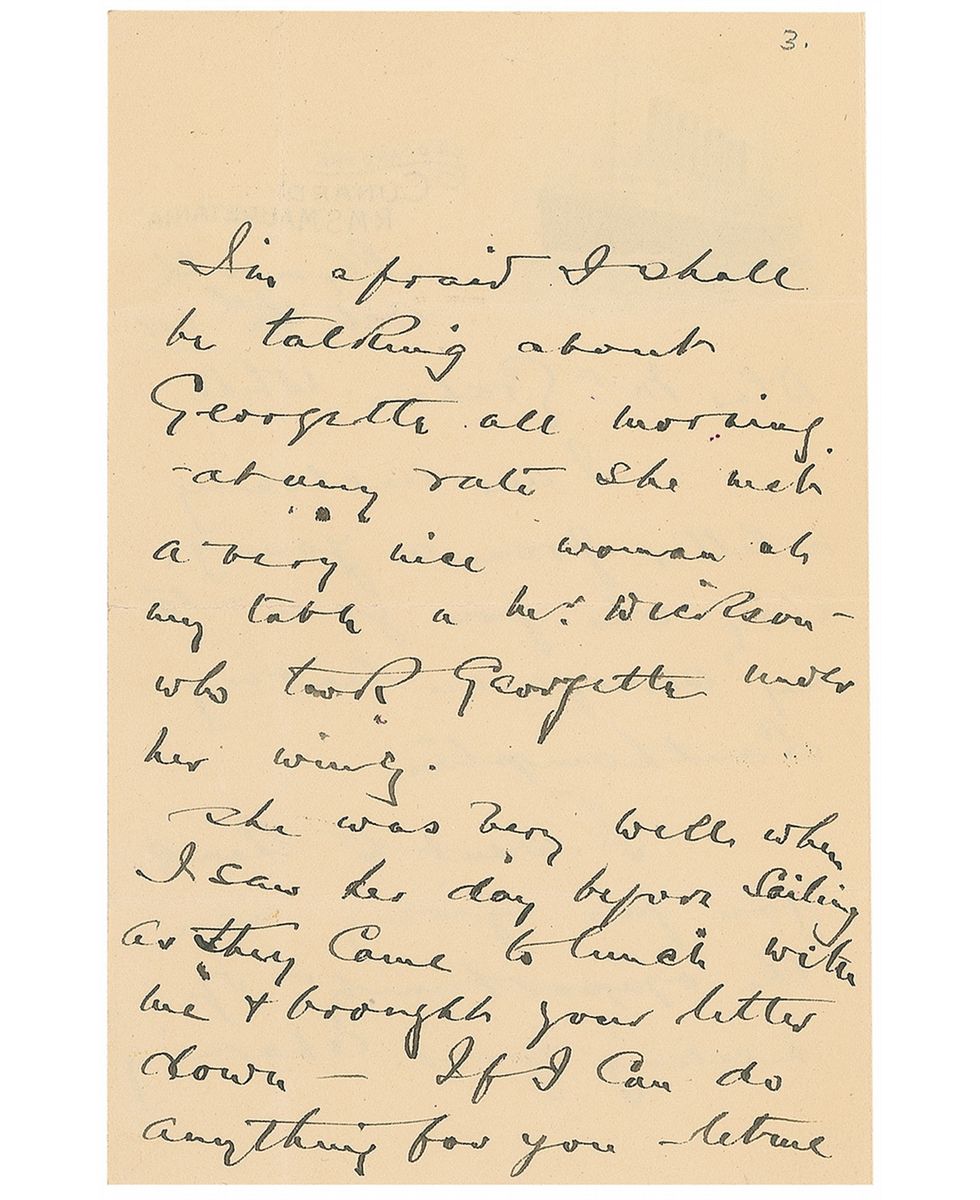 3.
CUNARD
RMS MAURETANIA
I'm afraid I shall
be talking about
Georgette all morning.
- at any rate she met
a very nice woman at
my table a Mrs. Dickson -
who took Georgette under
her wing.
She was very well when
I saw her day before Sailing
as they came to lunch with
me & brought your letter
down — If I can do
anything for you - let me